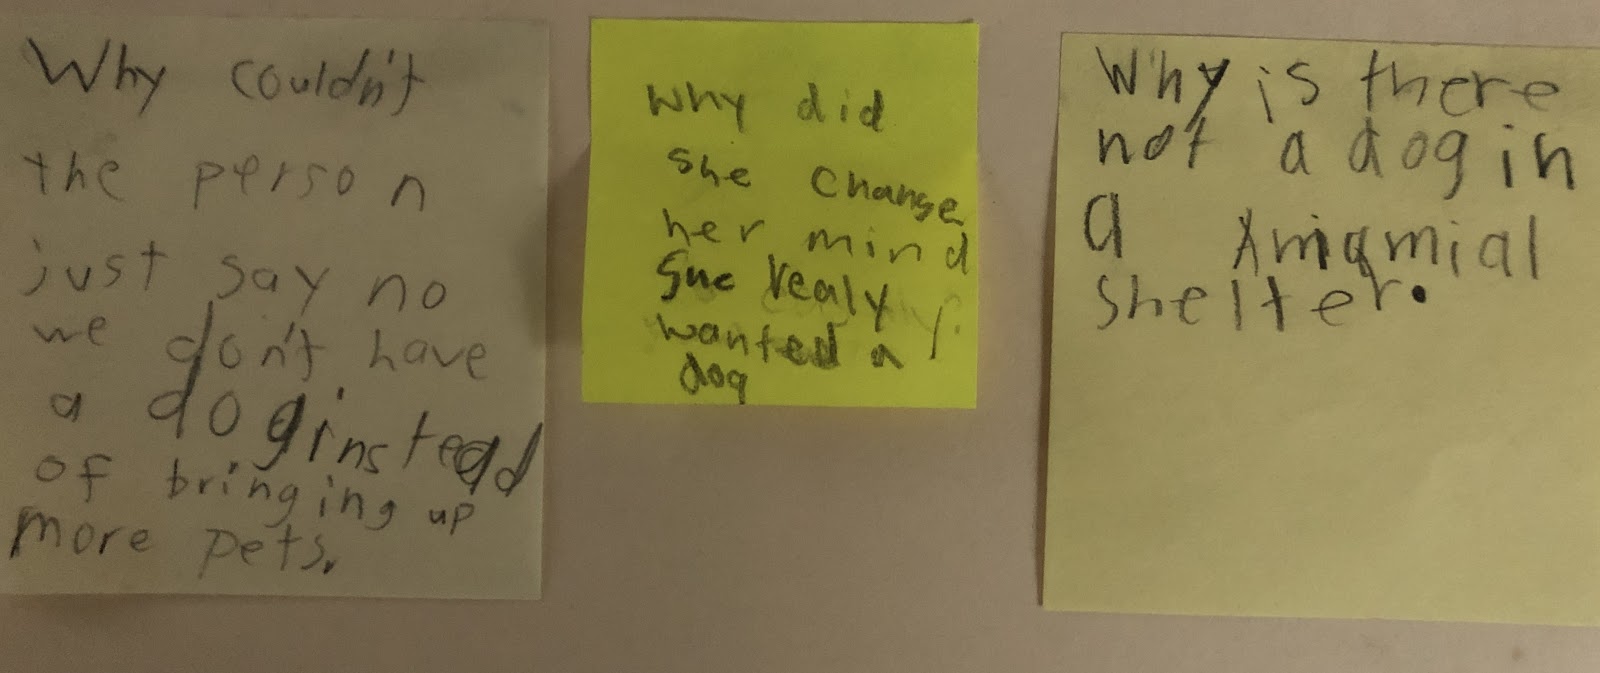 Why couldn't
the person
just say no
we don't have
a dog instead
of bringing up
more pets.
Why did
she change
her mind
She realy
wanted a
dog
Why is there
not a dog in
a
shelter.